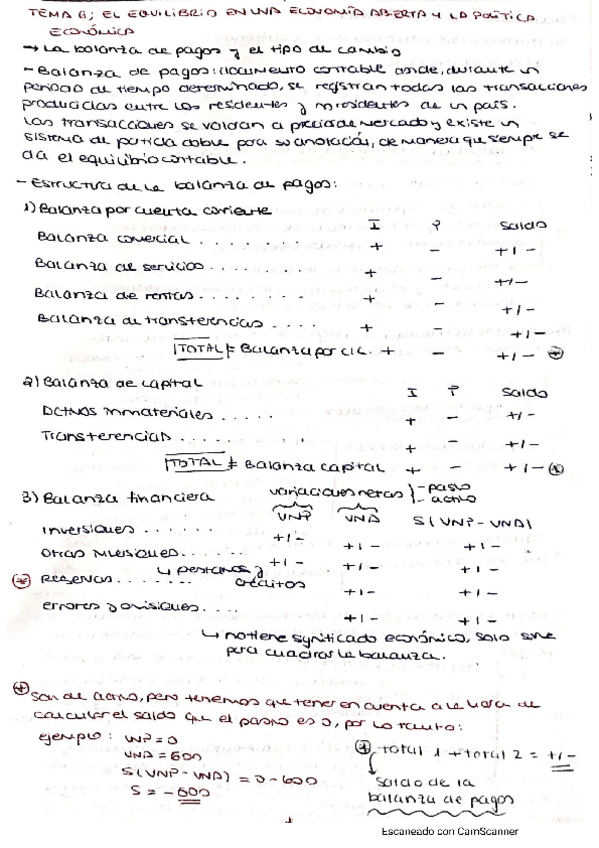 TEMA 6: EL EQUILIBRIO EN UNA ECONOMÍA ABIERTA Y LA POLÍTICA
ECONÓMICA
→ La balanza de pagos y el tipo de cambio
- Balanza de pagos: documento contable donde, durante un
periodo de tiempo determinado, se registran todas las transacciones
producidas entre los residentes y no residentes de un país.
Las transacciones se valoran a precio de mercado y existe un
sistema de partida doble para su anotación, de manera que siempre se
da el equilibrio contable.
- Estructura de la balanza de pagos:
1) Balanza por cuenta corriente
I P Saldo
Balanza comercial ........ + - +/-
Balanza de servicios ........ + - +/-
Balanza de rentas ........ + - +/-
Balanza de transferencias .... + - +/-
TOTAL = Balanza por c/c. + - +/- *
2) Balanza de capital
I P Saldo
Activos inmateriales ..... + - +/-
Transferencias ........ + - +/-
TOTAL = Balanza capital + - +/- *
3) Balanza financiera variaciones netas - pasivo
- activo
VNP VNA S(VNP - VNA)
Inversiones ...... +/- +/- +/-
Otras inversiones ..... +/- +/- +/-
↳ préstamos y créditos
* Reservas ....... +/- +/-
errores y omisiones .... +/- +/-
↳ no tiene significado económico, solo sirve
para cuadrar la balanza.
* Son de activo, pero tenemos que tener en cuenta a la hora de
calcular el saldo que el pasivo es 0, por lo tanto:
ejemplo: VNP = 0
VNA = 600
S(VNP - VNA) = 0 - 600
S = -600
* Total 1 + total 2 = +/-
Saldo de la
balanza de pagos
1
Escaneado con CamScanner